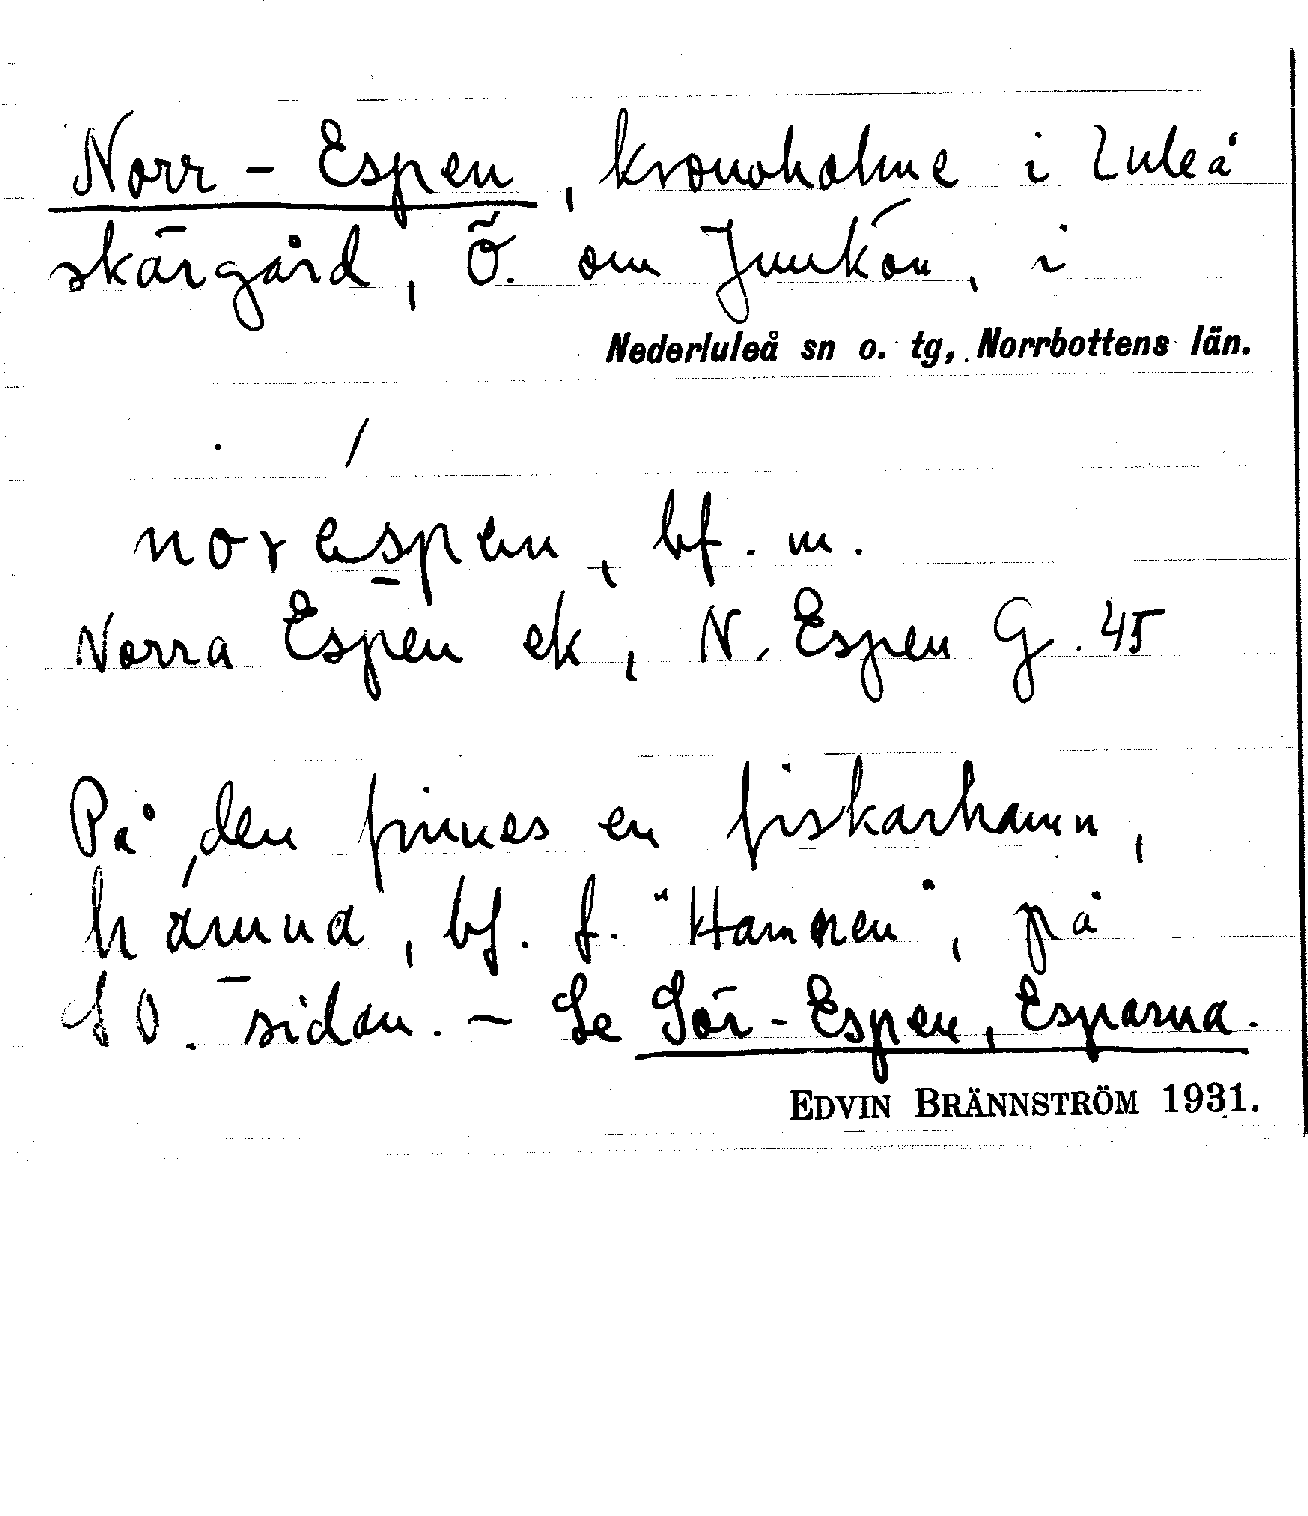 Norr-Espen, kronoholme i Luleå
skärgård, Ö. om Junkön, i
Nederluleå sn o. tg, Norrbottens län.
norespen, bf. m.
Norra Espen ek, N. Espen G. 45
På den finnes en fiskarhamn,
hamna, bf. f. "Hamnen", på
SO. sidan. - Se Sör-Espen, Esparna.
EDVIN BRÄNNSTRÖM 1931.